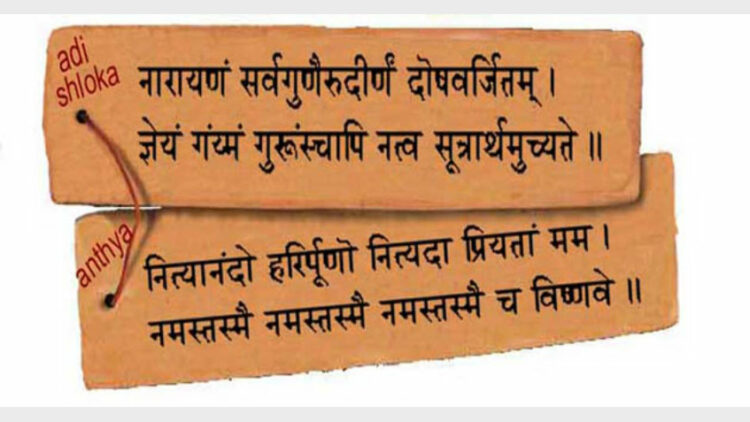 adi
shloka
नारायणं सर्वगुणैरुदीर्णं दॊषवर्जितम् ।
ज्ञेयं गंय्मं गुरूंस्चापि नत्व सूत्रार्थमुच्यते ॥
anthya
नित्यानंदो हरिर्पूणॊ नित्यदा प्रियतां मम ।
नमस्तस्मै नमस्तस्मै नमस्तस्मै च विष्णवे ॥